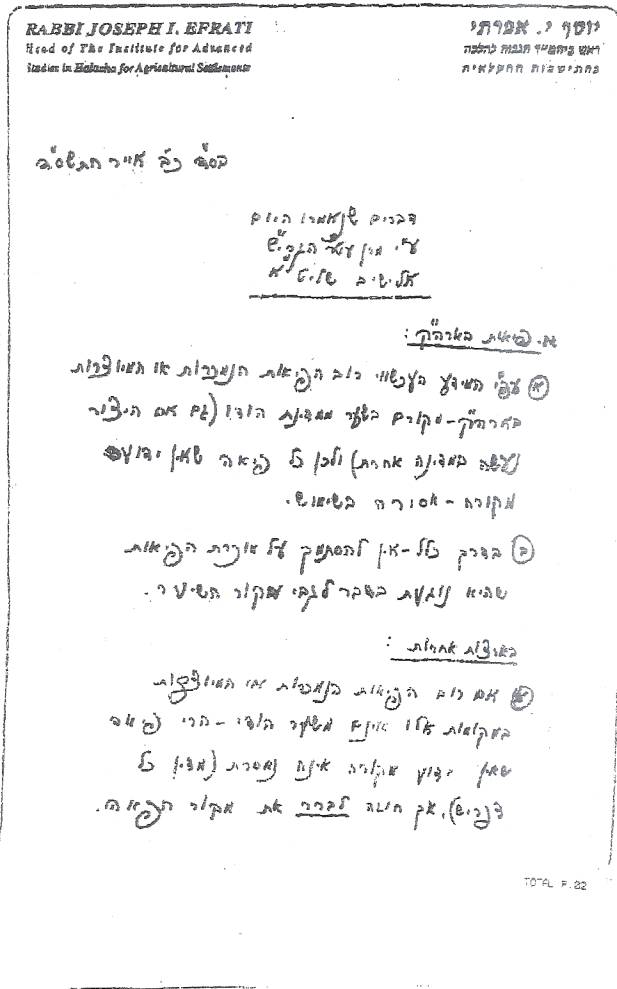 RABBI JOSEPH I. EFRATI
Head of The Institute for Advanced
Studies in Halacha for Agricultural Settlements
יוסף י. אפרתי
ראש המדרשה הגבוהה להלכה
בהתישבות החקלאית
בס"ד כ"ב אייר התשס"ד
דברים שנאמרו היום
ע"י מרן הגרי"ש
אלישיב שליט"א
א. פיאות בארה"ק:
א) עפ"י המידע העכשווי רוב הפיאות הנמכרות או המיוצרות
בארה"ק - מקורם בשער ממדינת הודו (גם אם היצור
נעשה במדינה אחרת) ולכן כל פיאה שאין ידוע
מקורה - אסורה בשימוש.
ב) בדרך כלל - אין להסתמך על מוכרת הפיאות
שהיא נוגעת בדבר לגבי מקור השיער.
בארצות אחרות:
א) אם רוב הפיאות הנמכרות או המיוצרות
במקומות אלו אינם משער הודי - הרי פיאה
שאין ידוע מקורה אינה נאסרת (מדין כל
דפריש), אך חובה לברר את מקור הפיאה.
TOTAL P.02